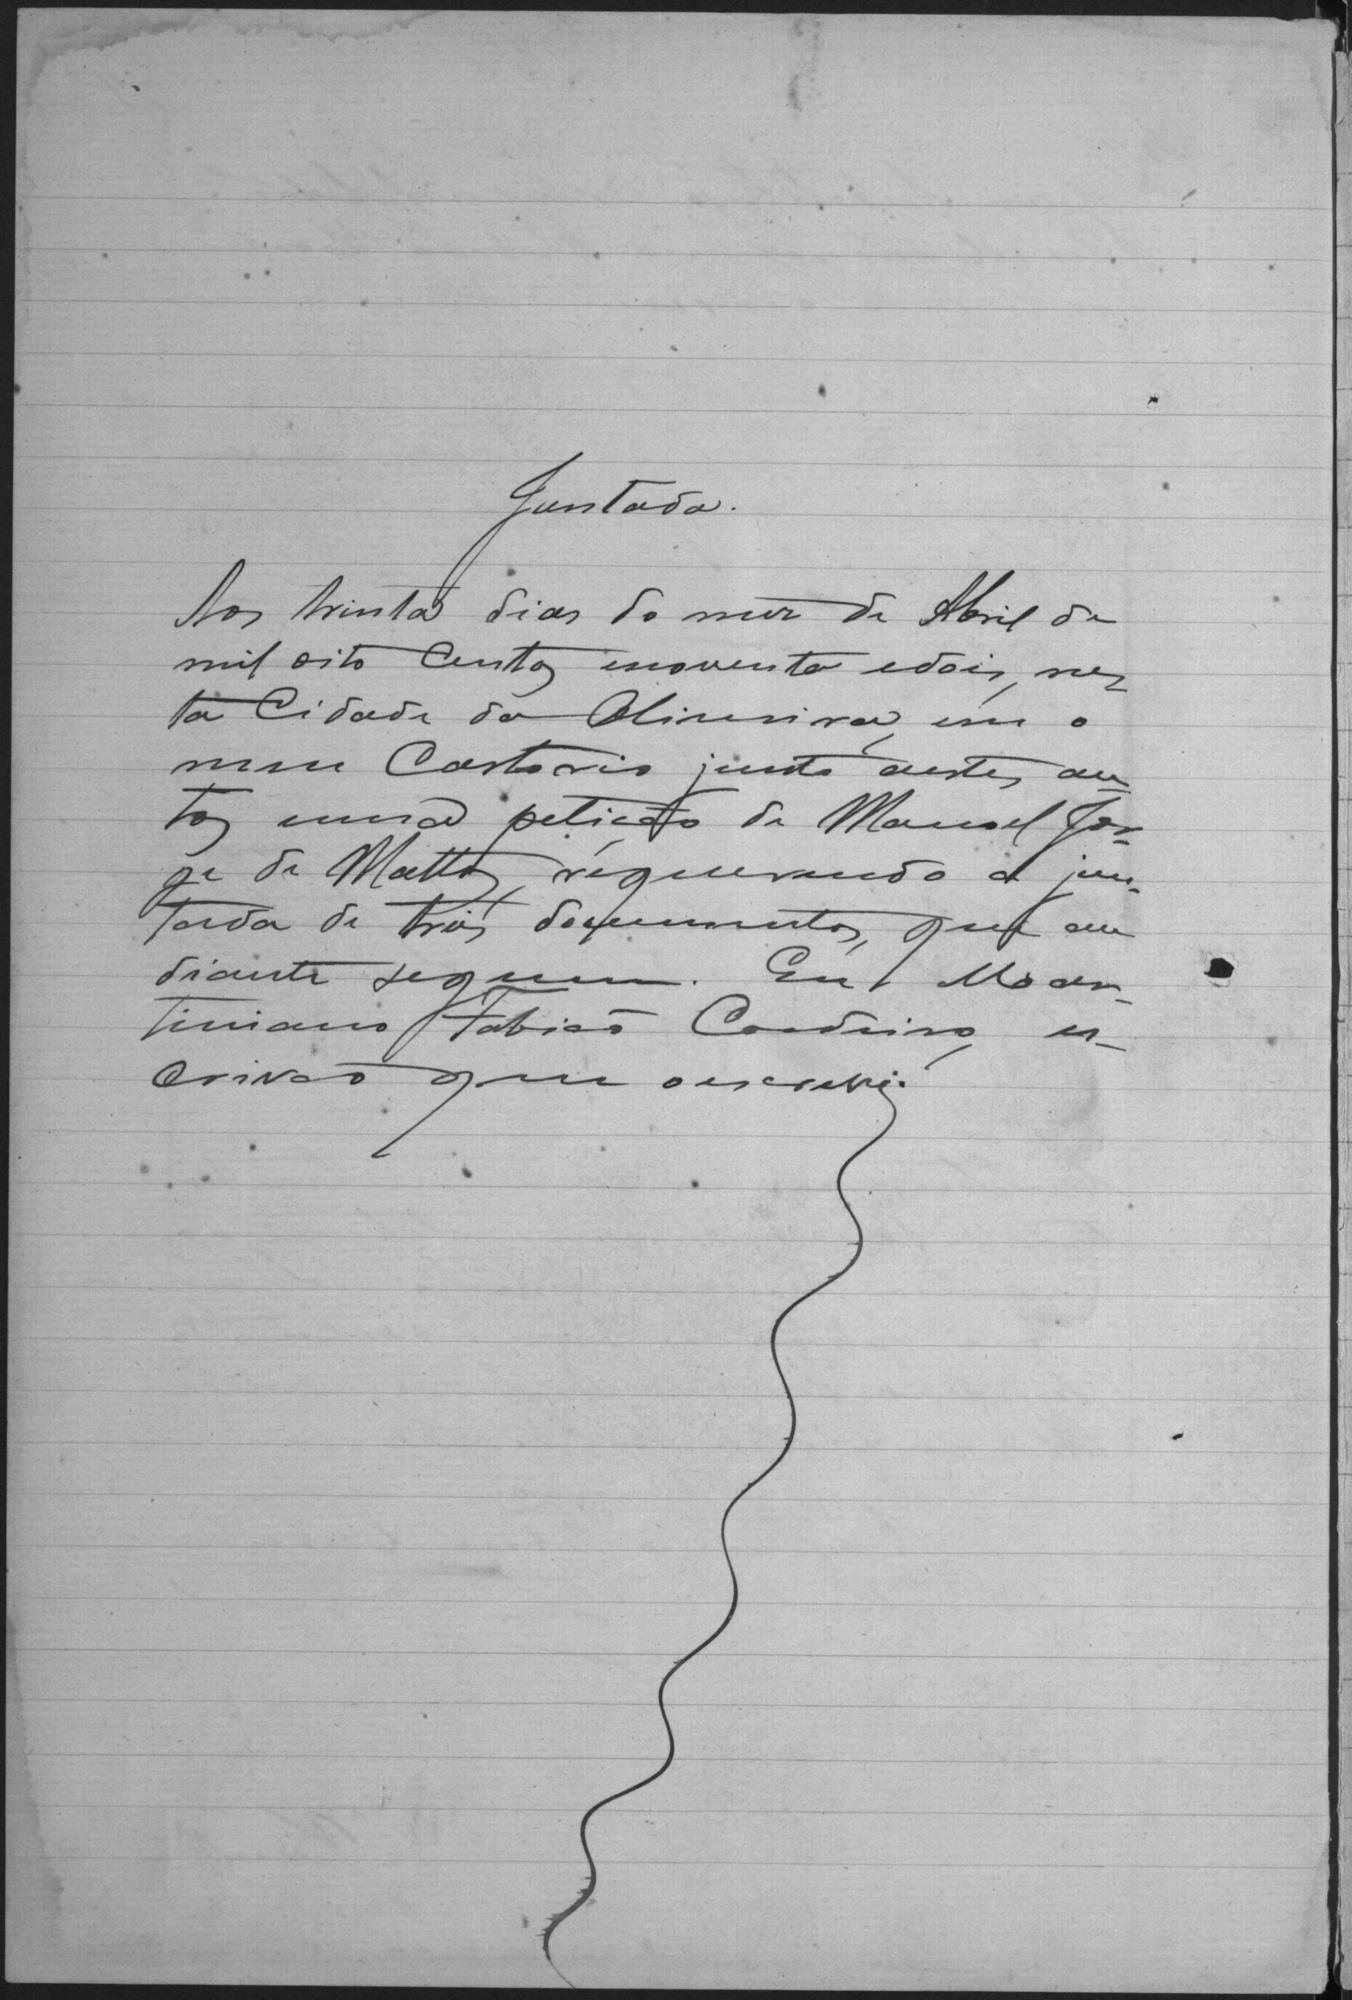 Juntada.
Aos trinta dias do mez de Abril de
mil oito centos enoventa edois, nes_
ta Cidade da Oliveira, em o
meu Cartorio junto aestes au_
tos uma petição de Manoel Jor_
ge de Mattos, requerendo a jun_
tada de tres documentos, que au
diante seguem. Eu, Mar_
tiniano Fabião Cordeiro, es_
crivão que oescrevi.